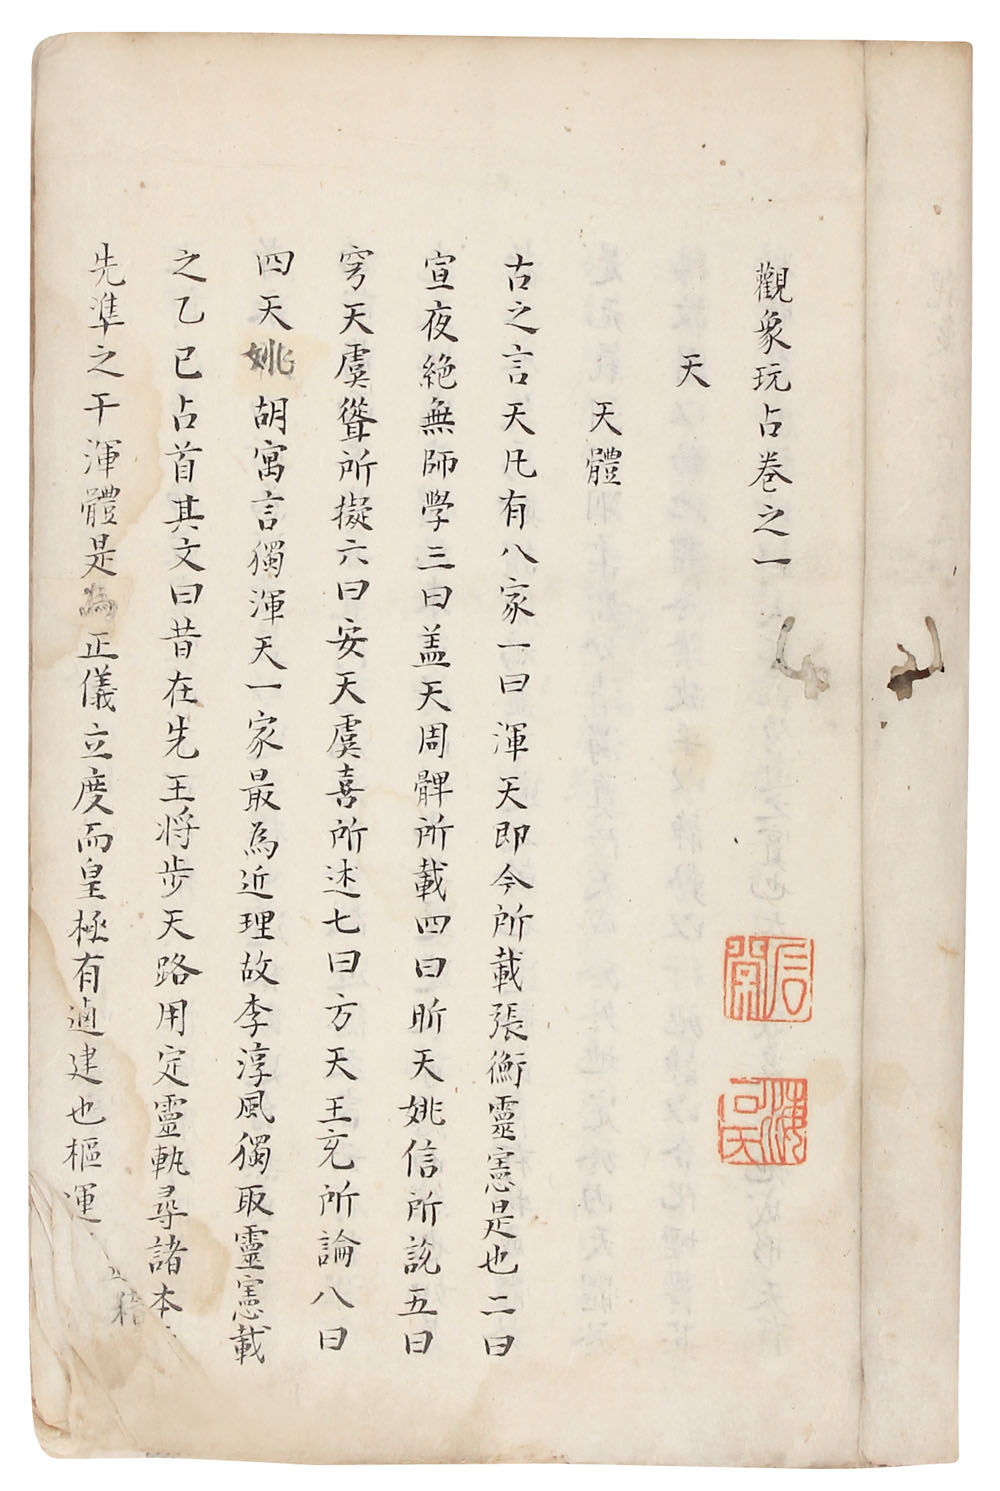 觀象玩占卷之一
天
天體
古之言天凡有八家一曰渾天即今所載張衡靈憲是也二曰
宣夜絶無師学三曰盖天周髀所載四曰昕天姚信所説五曰
穹天虞聳所擬六曰安天虞喜所述七曰方天王充所論八曰
四天姚胡寓言獨渾天一家最為近理故李淳風獨取靈憲載
之乙巳占首其文曰昔在先王將步天路用定靈軌尋諸本
先準之于渾體是為正儀立度而皇極有逌建也樞運
稽